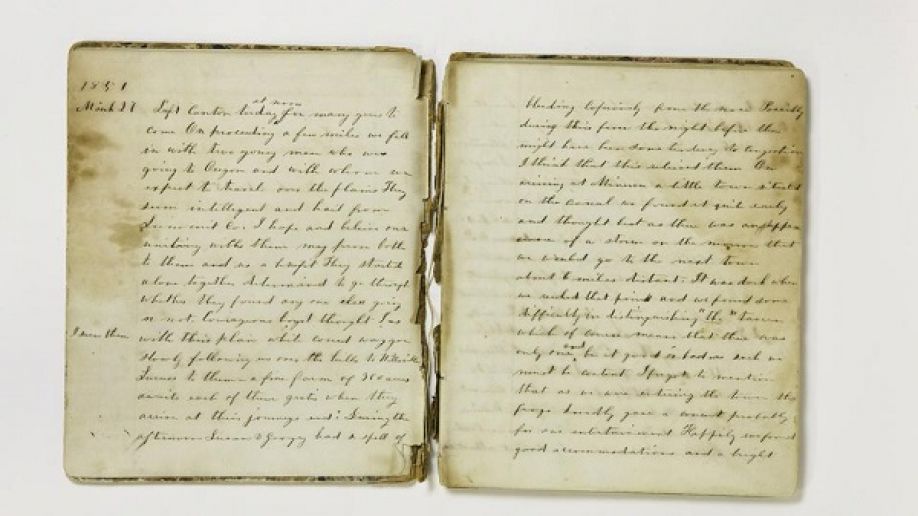 1851
March 27
at noon
Left Canton today for many years to
come On proceeding a few miles we fell
in with two young men who were
going to Oregon and with whom we
expect to travel over the plains They
seem intelligent and hail from
Co. I hope and believe our
uniting with them may prove both
to them and us a benefit They started
alone together determined to go through
whether they found any one else going
or not. Courageous boys! thought I as
I
with this plan while
slowly following us over the hills to
to them a fine farm of acres
awaits each of them gratis when they
arrive at their journeys end! During the
afternoon Susan & Georgy had a spell of
bleeding copiously from the nose Possibly
during this from the night before there
might have been some tendency to congestion
I think that this relieved them On
arriving at Minerva a little town situated
on the canal we found it quite early
and thought that as there was an appea
of a storm on the morrow that
we would go to the next town
about 6 miles distant. It was dark when
we reached that point and we found some
difficulty in distinguishing "the" "tavern
which of course means that there was
only one and be it good or bad we
must be content I forgot to mention
that as we were entering the town the
frogs kindly gave a concert probably
for our entertainment Happily we found
good accommodations and a bright